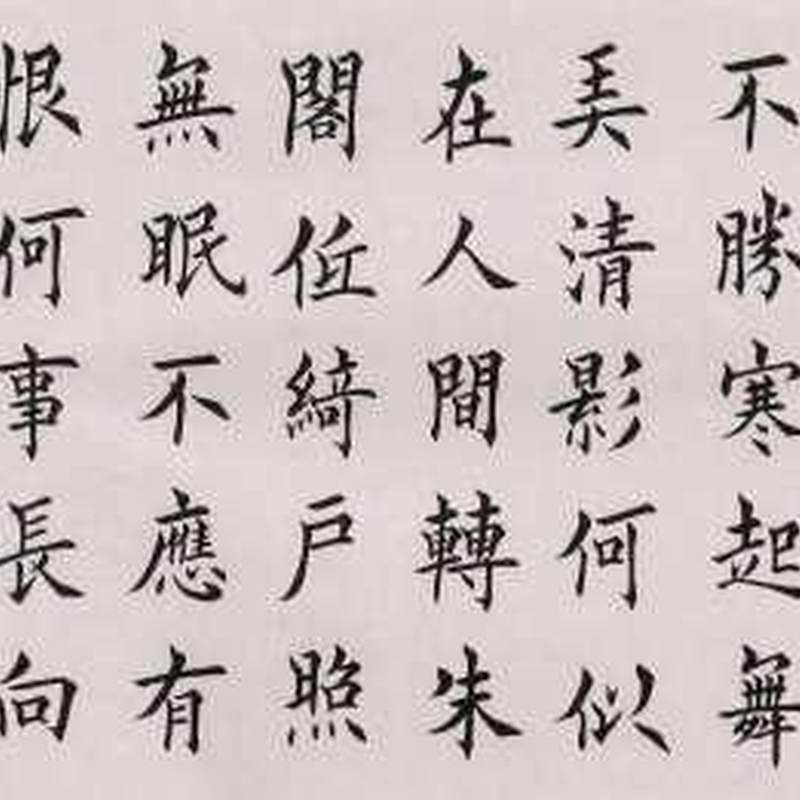 不勝寒起舞
弄清影何似
在人間轉朱
閣低綺户照
無眠不應有
恨何事長向